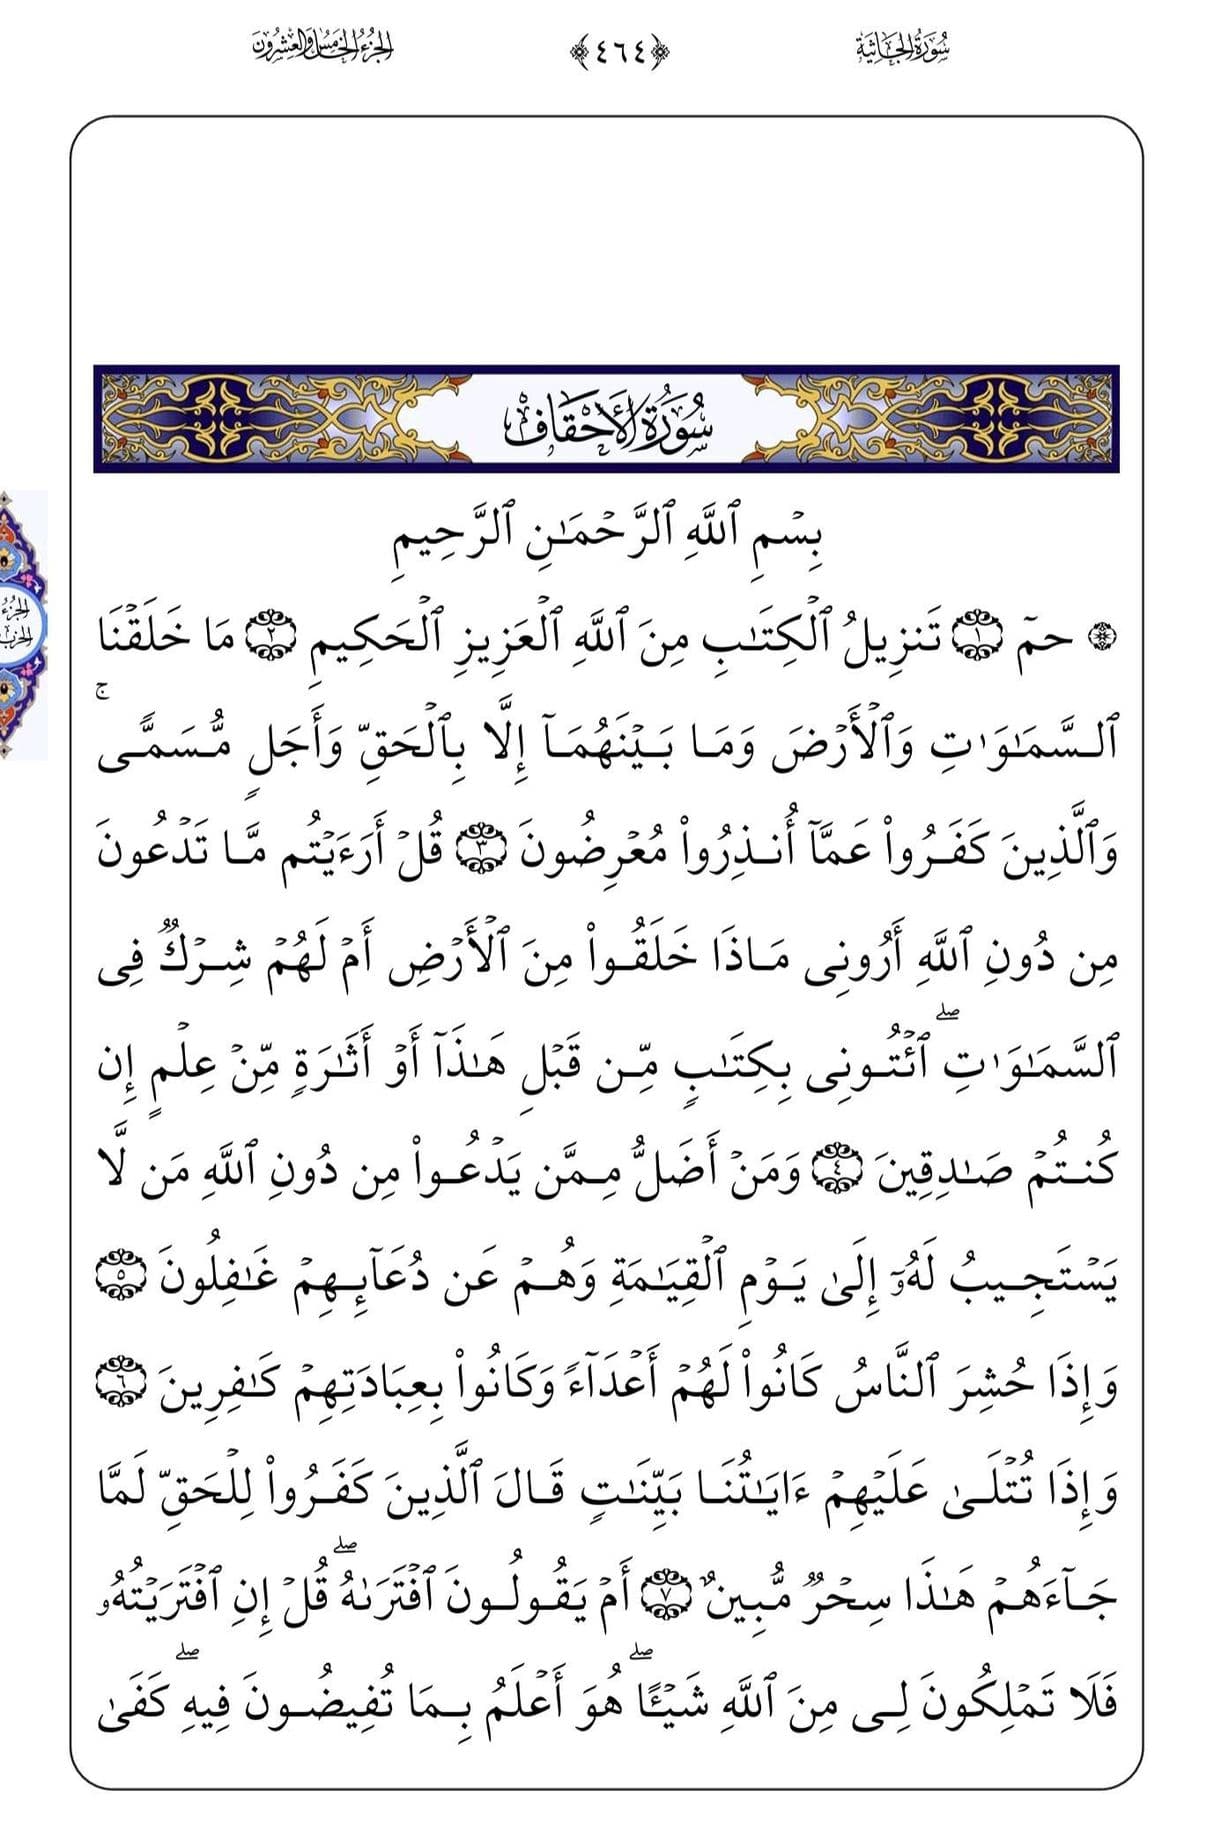 سُورَةُ الجَاثِيَة
﴿٤٦٤﴾
الجُزْءُ الخَامِسُ وَالعِشْرُونَ
سُورَةُ الأَحْقَافِ
بِسْمِ ٱللَّهِ ٱلرَّحْمَـٰنِ ٱلرَّحِيمِ
۞ حمٓ ١ تَنزِيلُ ٱلْكِتَـٰبِ مِنَ ٱللَّهِ ٱلْعَزِيزِ ٱلْحَكِيمِ ٢ مَا خَلَقْنَا
ٱلسَّمَـٰوَٰتِ وَٱلْأَرْضَ وَمَا بَيْنَهُمَآ إِلَّا بِٱلْحَقِّ وَأَجَلٍ مُّسَمًّى ۚ
وَٱلَّذِينَ كَفَرُوا۟ عَمَّآ أُنذِرُوا۟ مُعْرِضُونَ ٣ قُلْ أَرَءَيْتُم مَّا تَدْعُونَ
مِن دُونِ ٱللَّهِ أَرُونِى مَاذَا خَلَقُوا۟ مِنَ ٱلْأَرْضِ أَمْ لَهُمْ شِرْكٌ فِى
ٱلسَّمَـٰوَٰتِ ۖ ٱئْتُونِى بِكِتَـٰبٍ مِّن قَبْلِ هَـٰذَآ أَوْ أَثَـٰرَةٍ مِّنْ عِلْمٍ إِن
كُنتُمْ صَـٰدِقِينَ ٤ وَمَنْ أَضَلُّ مِمَّن يَدْعُوا۟ مِن دُونِ ٱللَّهِ مَن لَّا
يَسْتَجِيبُ لَهُۥٓ إِلَىٰ يَوْمِ ٱلْقِيَـٰمَةِ وَهُمْ عَن دُعَآئِهِمْ غَـٰفِلُونَ ٥
وَإِذَا حُشِرَ ٱلنَّاسُ كَانُوا۟ لَهُمْ أَعْدَآءً وَكَانُوا۟ بِعِبَادَتِهِمْ كَـٰفِرِينَ ٦
وَإِذَا تُتْلَىٰ عَلَيْهِمْ ءَايَـٰتُنَا بَيِّنَـٰتٍ قَالَ ٱلَّذِينَ كَفَرُوا۟ لِلْحَقِّ لَمَّا
جَآءَهُمْ هَـٰذَا سِحْرٌ مُّبِينٌ ٧ أَمْ يَقُولُونَ ٱفْتَرَىٰهُ ۖ قُلْ إِنِ ٱفْتَرَيْتُهُۥ
فَلَا تَمْلِكُونَ لِى مِنَ ٱللَّهِ شَيْـًٔا ۖ هُوَ أَعْلَمُ بِمَا تُفِيضُونَ فِيهِ ۖ كَفَىٰ